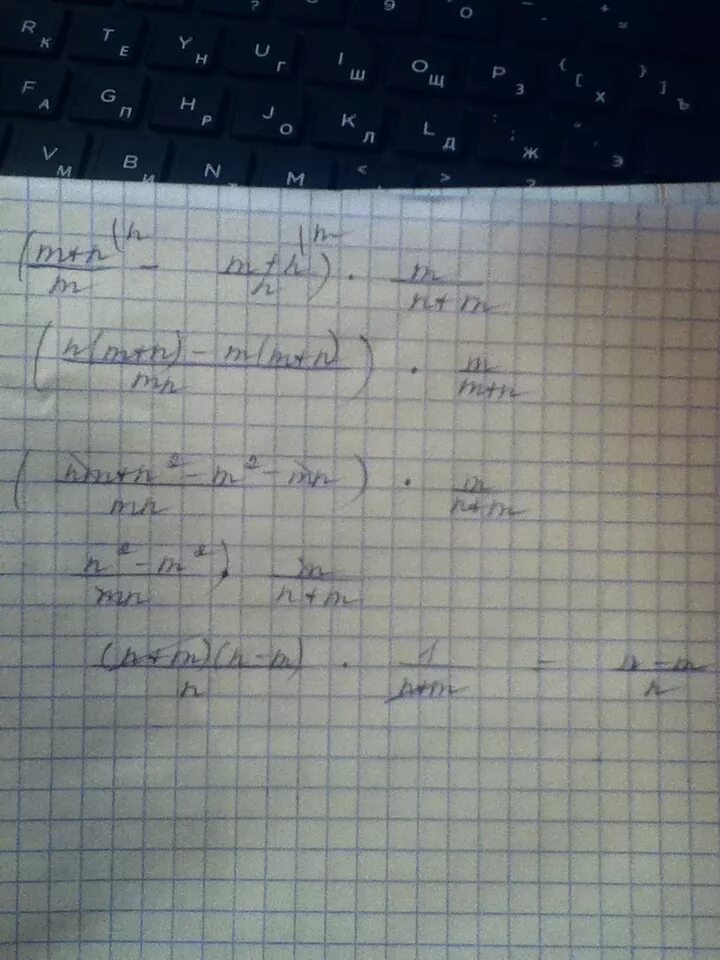 R К T Е Y Н U Г I Ш O Щ P З { [ Х } ] Ъ
F А G П H Р J О K Л L Д : ; Ж " Э
V М B И N M < >
((m+n)/m |n - (m+n)/n |m) · m/(n+m)
((n(m+n) - m(m+n))/mn) · m/(m+n)
((nm+n² - m² - mn)/mn) · m/(n+m)
(n² - m²)/mn) · m/(n+m)
((n+m)(n-m))/n · 1/(n+m) = (n-m)/n